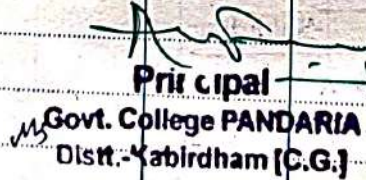 Principal
Govt. College PANDARIA
Distt.-Kabirdham [C.G.]